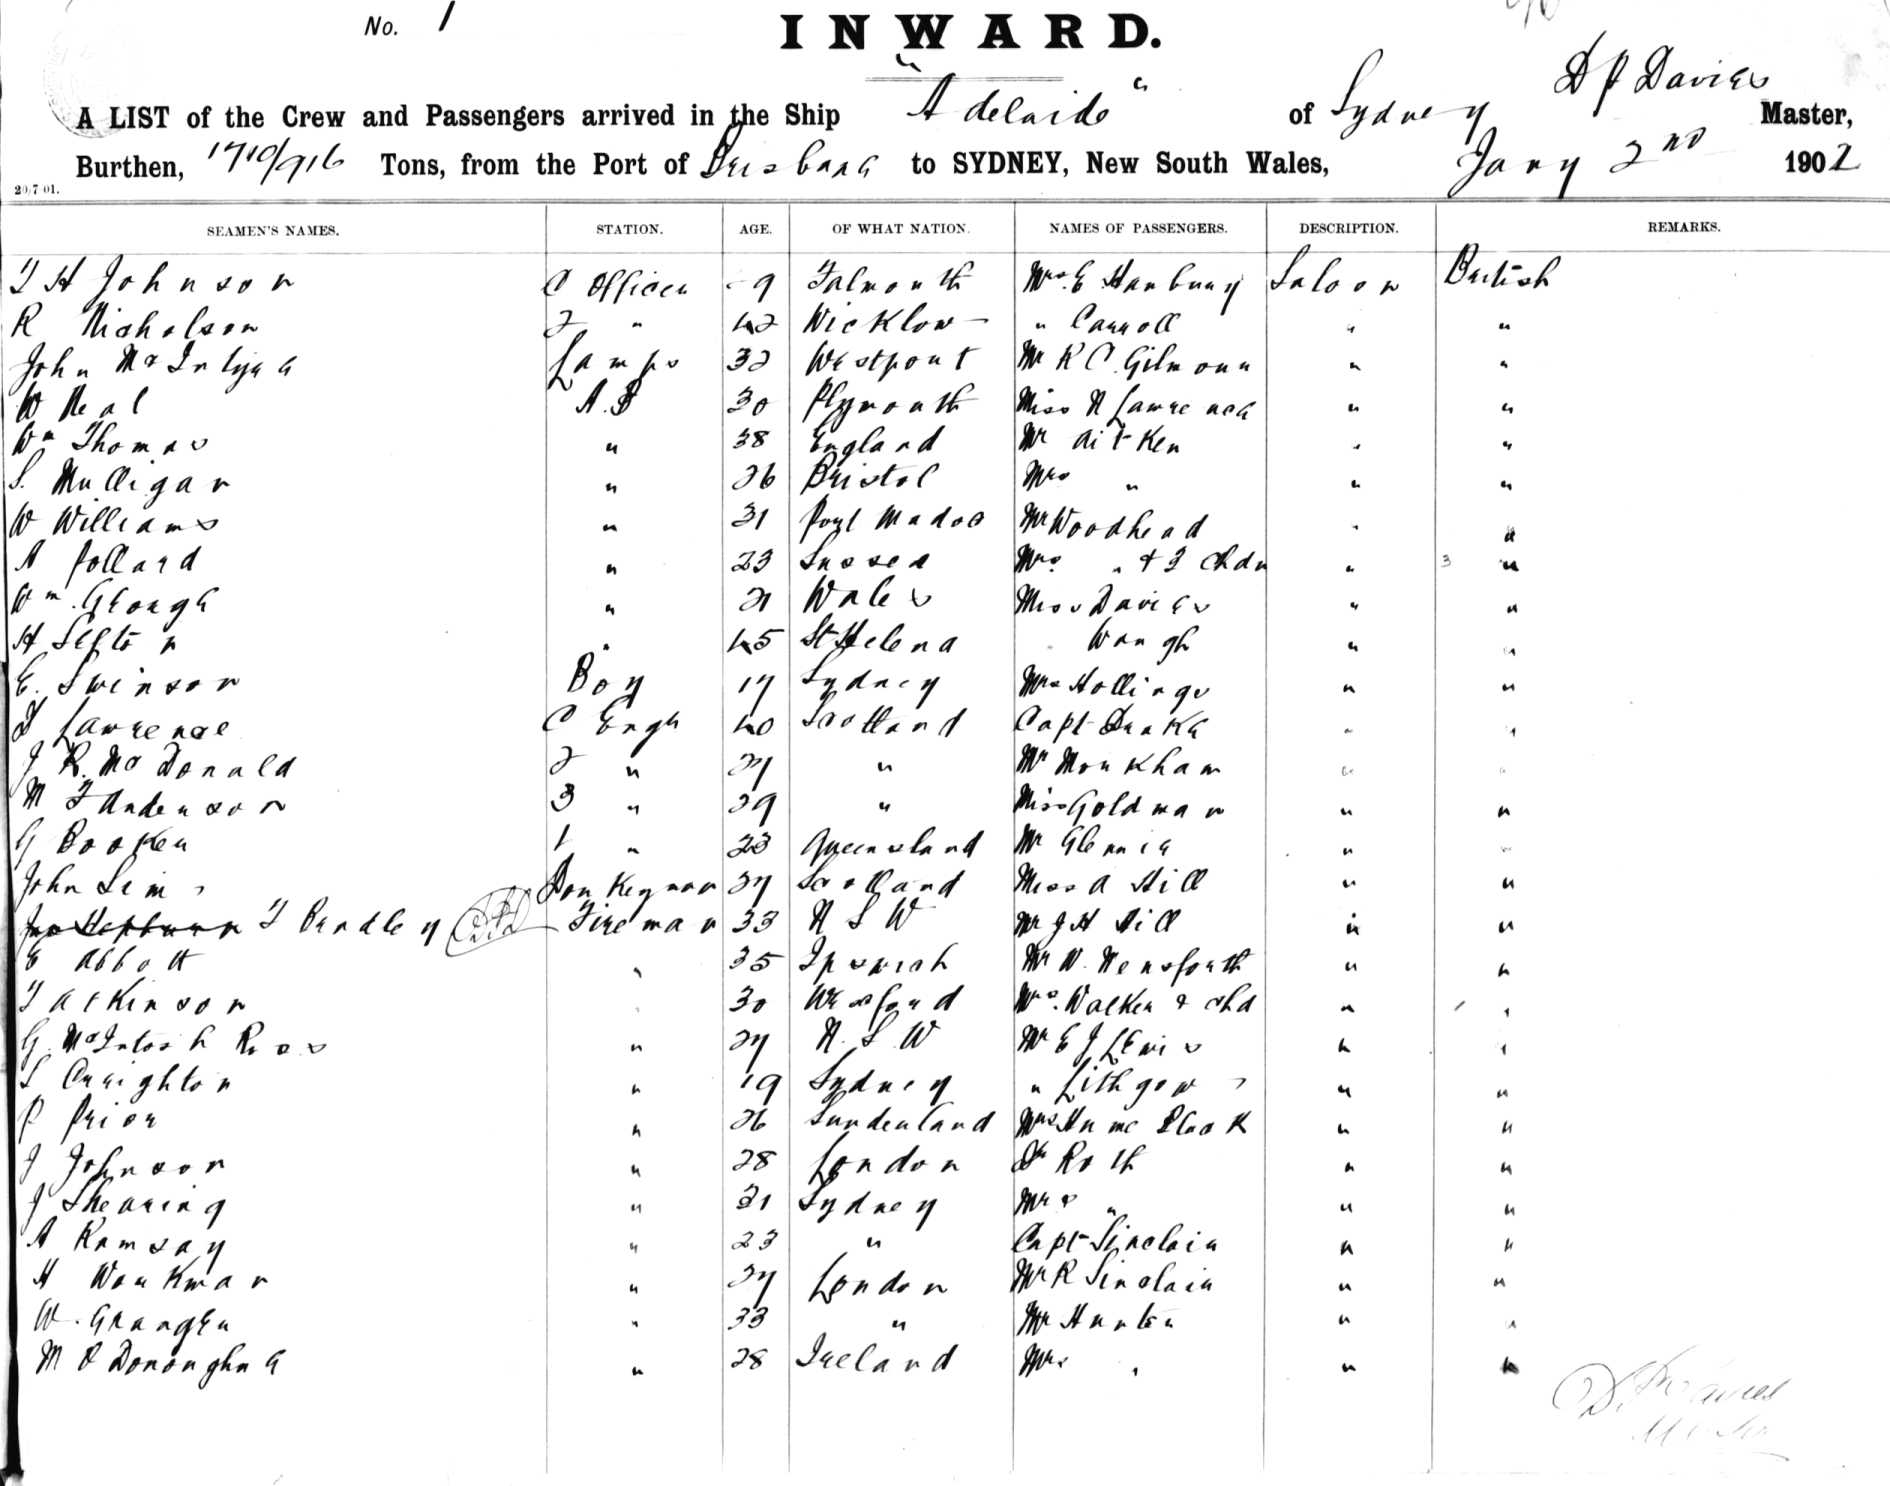 No. 1
INWARD.
D J Davies
A LIST of the Crew and Passengers arrived in the Ship "Adelaide" of Sydney Master,
Burthen, 1710/916 Tons, from the Port of Brisbane to SYDNEY, New South Wales, Jany 2nd 1902
20/7 01.
SEAMEN'S NAMES. STATION. AGE. OF WHAT NATION. NAMES OF PASSENGERS. DESCRIPTION. REMARKS.
T H Johnson C Officer 9 Falmouth Mrs. E Hanbury Saloon British
R Nicholson 2 " 42 Wicklow " Carroll " "
John McIntyre Lamps 32 Westport Mr R C. Gilmour " "
W Neal A.B 30 Plymouth Miss N Lawrence " "
Wm Thomas " 38 England Mr Aitken " "
S. Mulligan " 26 Bristol Mrs " " "
W Williams " 31 Port Madoc Mr Woodhead " "
A Pollard " 23 Sussex Mrs " + 3 Chdn " 3 "
Wm. George " 21 Wales Miss Davies " "
H Sefton " 45 St Helena " Waugh " "
E. Swinson Boy 17 Sydney Mrs Hollings " "
T Lawrence C Engr 40 Scotland Capt Drake " "
J R. McDonald 2 " 27 " Mr Monkham " "
M F Anderson 3 " 29 " Miss Goldman " "
G Booker 1 " 23 Queensland Mr Glennie " "
John Sim Donkeyman 27 Scotland Miss A Hill " "
Jno Hepburn T Bradley Fireman 33 N S W Mr J H Hill " "
E Abbott " 35 Ipswich Mr W. Hensforth " "
T Atkinson " 30 Wexford Mrs. Walker & chd " 1 "
G. McIntosh Ross " 27 N. S. W Mr E J Lewis " "
S Creighton " 19 Sydney " Lithgow " "
P Prior " 26 Sunderland Mrs Hume Black " "
J Johnson " 28 London Dr Roth " "
J Shearing " 21 Sydney Mrs " " "
A Ramsay " 23 " Capt Sinclair " "
H Workman " 27 London Mr R Sinclair " "
W. Granger " 33 " Mr Hunter " "
M O Donoghue " 28 Ireland Mrs " " "